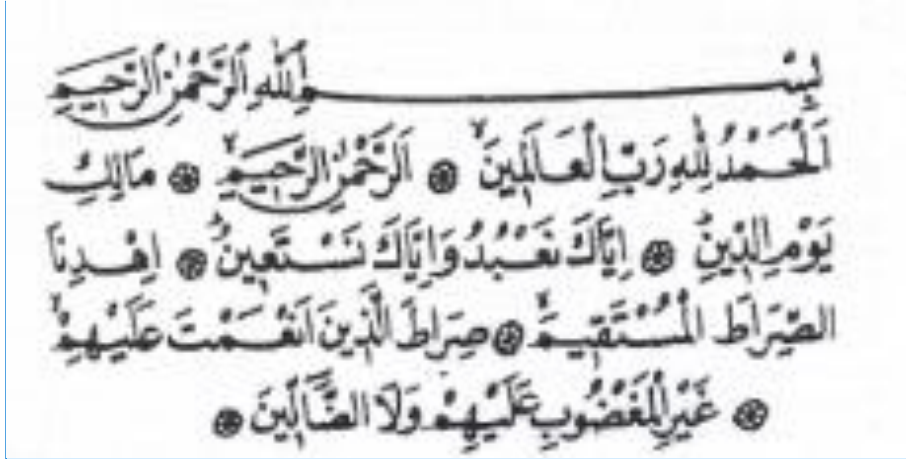 بِسْــــــمِ اللّٰهِ الرَّحْمٰنِ الرَّحِيمِ
اَلْحَمْدُ لِلّٰهِ رَبِّ الْعَالَمِينَۙ ۞ اَلرَّحْمٰنِ الرَّحِيمِۙ ۞ مَالِكِ
يَوْمِ الدِّينِۜ ۞ اِيَّاكَ نَعْبُدُ وَاِيَّاكَ نَسْتَعِينُۜ ۞ اِهْدِنَا
الصِّرَاطَ الْمُسْتَقِيمَۙ ۞ صِرَاطَ الَّذِينَ اَنْعَمْتَ عَلَيْهِمْۙ
۞ غَيْرِ الْمَغْضُوبِ عَلَيْهِمْ وَلَا الضَّٓالِّينَ ۞